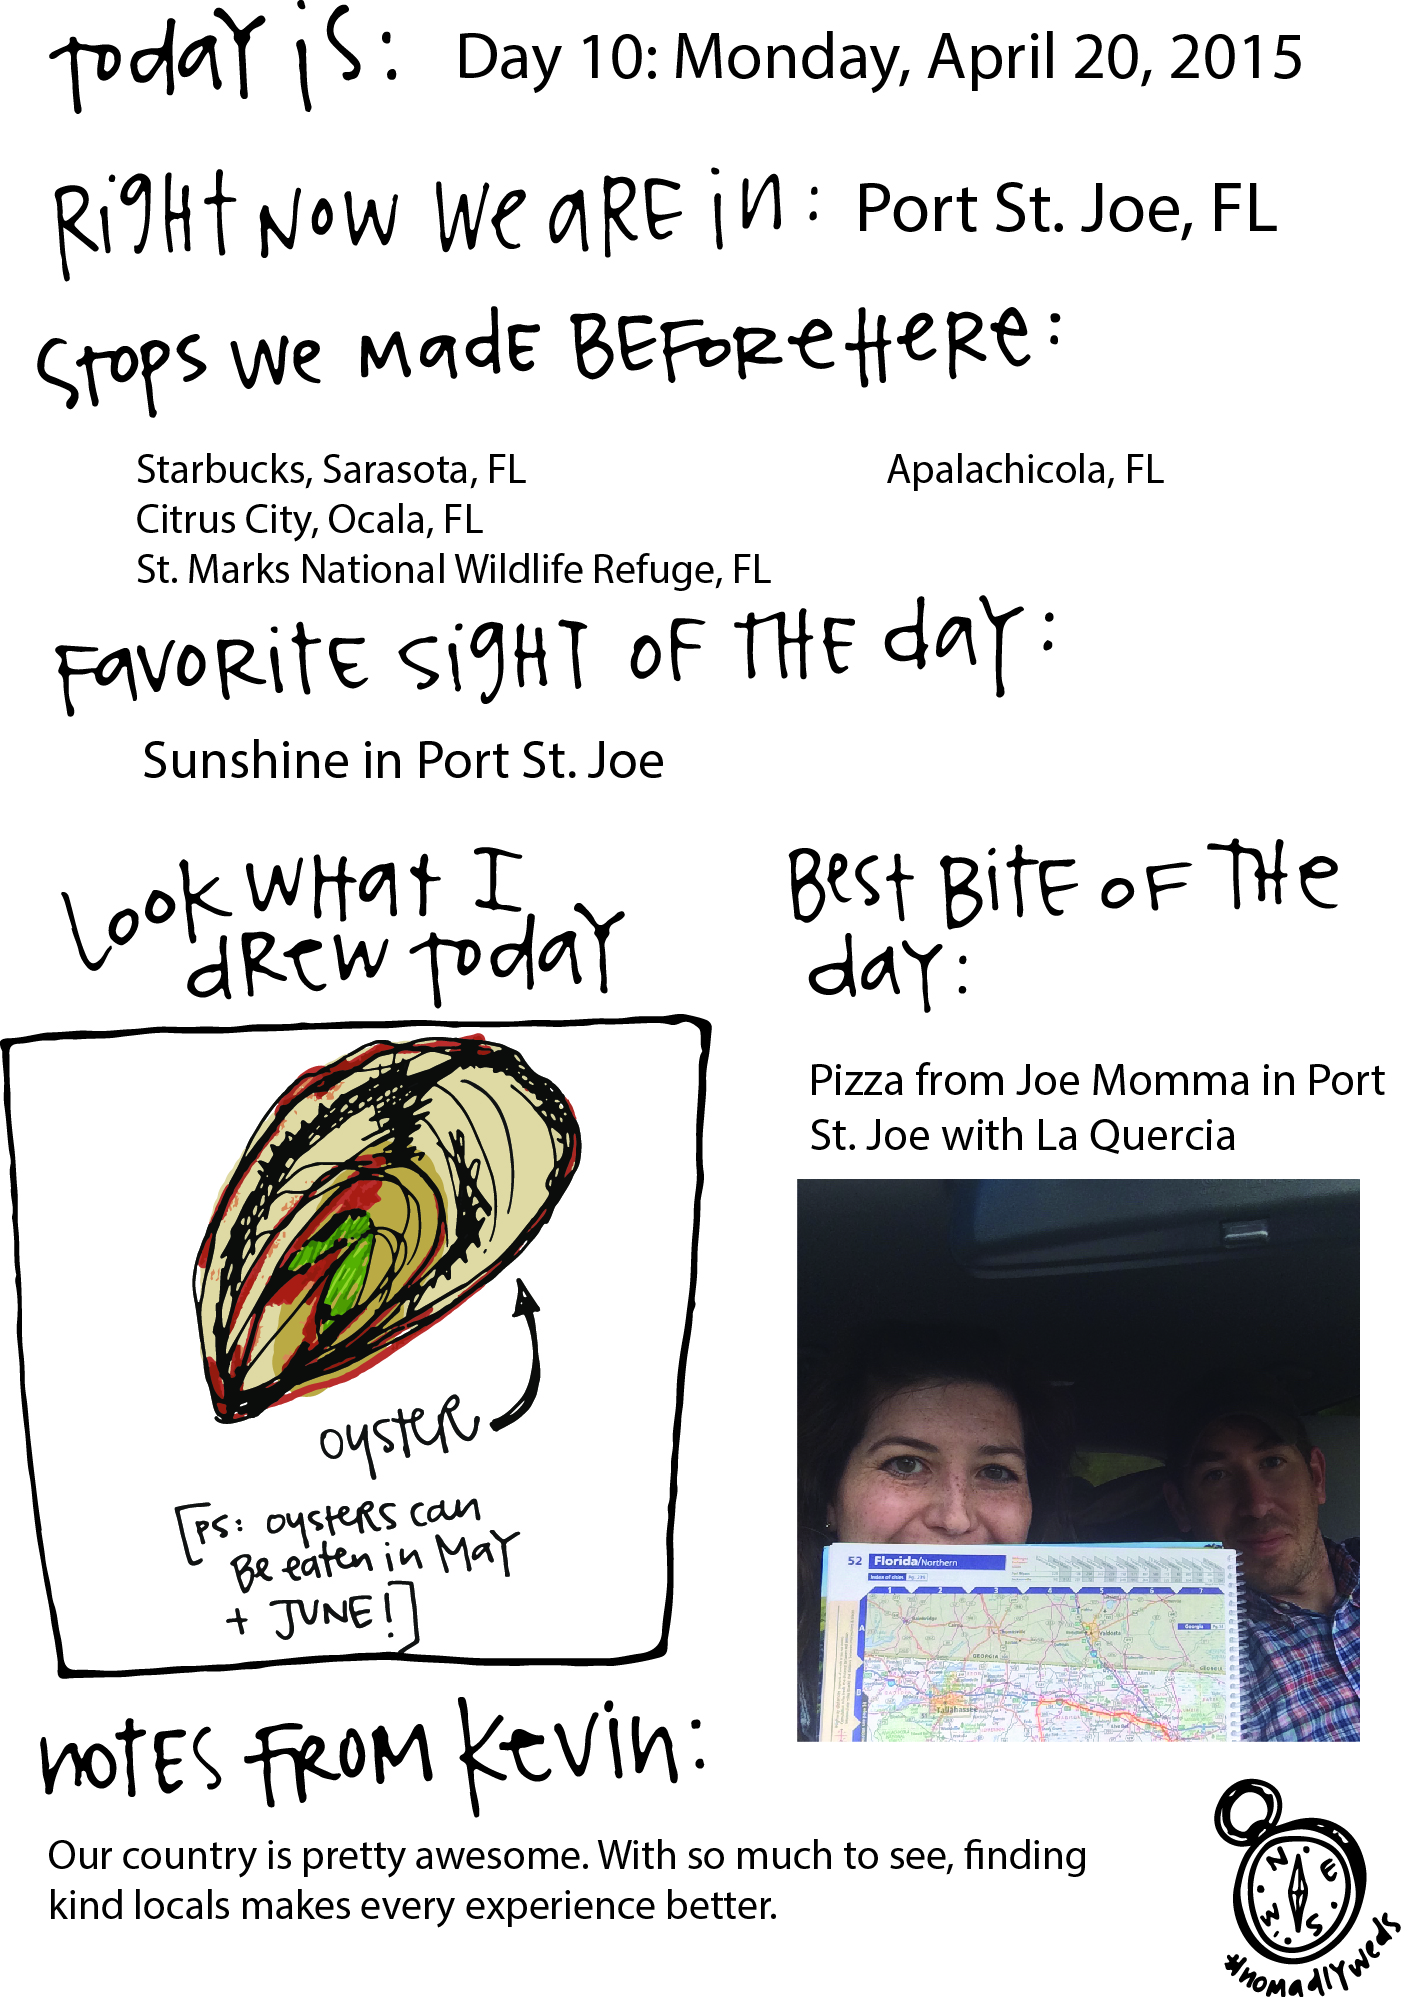 today is: Day 10: Monday, April 20, 2015
Right now we are in: Port St. Joe, FL
Stops we made before here:
Starbucks, Sarasota, FL
Citrus City, Ocala, FL
St. Marks National Wildlife Refuge, FL
Apalachicola, FL
Favorite sight of the day:
Sunshine in Port St. Joe
Look what I
drew today
oyster
[ps: oysters can
be eaten in May
+ JUNE!]
Best Bite of the
day:
Pizza from Joe Momma in Port
St. Joe with La Quercia
52 Florida/Northern
Index of cities Pg.
1 2 3 4 5 6 7
A
Georgia
GEORGIA
Valdosta
Tallahassee
notes from Kevin:
Our country is pretty awesome. With so much to see, finding
kind locals makes every experience better.
N E
W S
#nomadlyweds